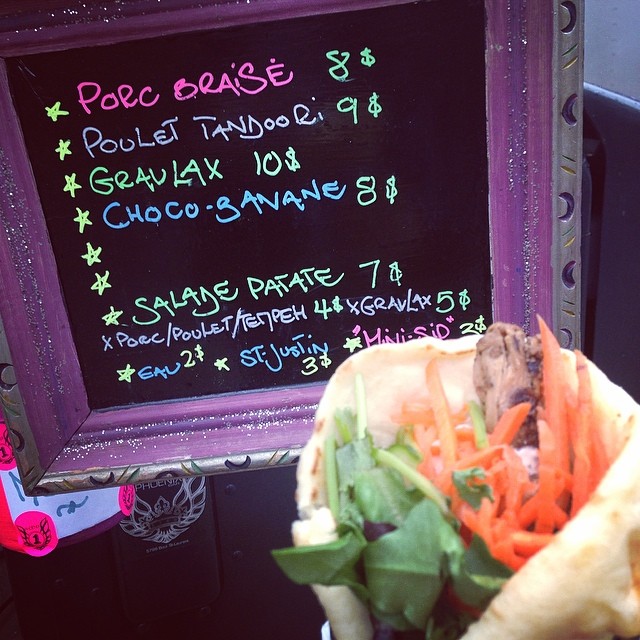 PORC BRAISÉ 8$
POULET TANDOORI 9$
GRAVLAX 10$
CHOCO-BANANE 8$
SALADE PATATE 7$
X PORC/POULET/TEMPEH 4$ X GRAVLAX 5$
EAU 2$ ST-JUSTIN 3$ "MINI-SID" 3$
PHOENIX
1
1
1